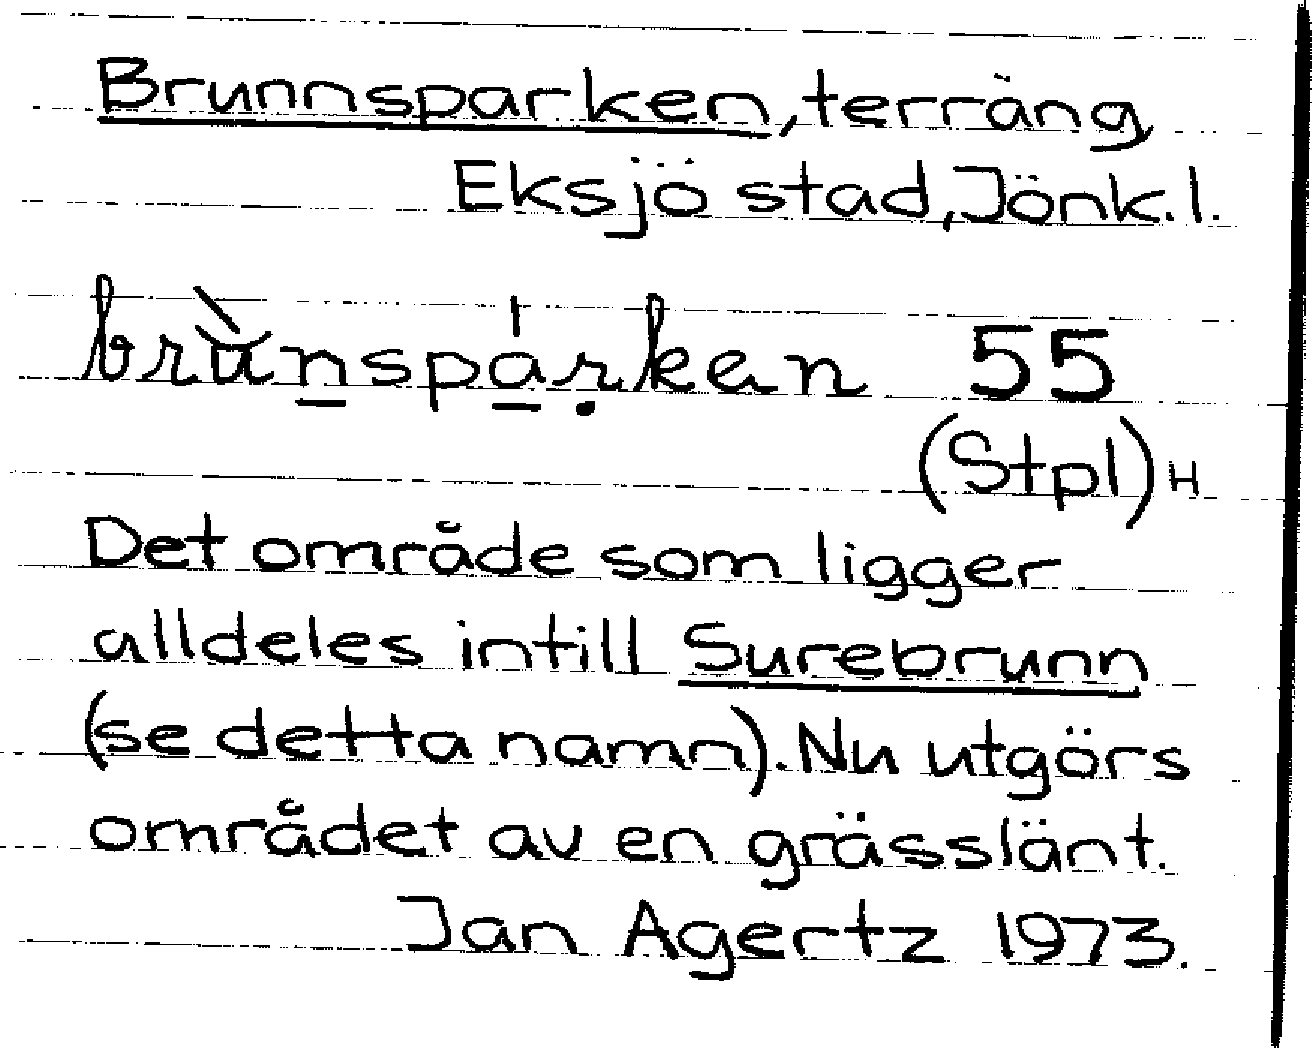 Brunnsparken, terräng
Eksjö stad, Jönk.l.
brùnspárken 55
(Stpl) H
Det område som ligger
alldeles intill Surebrunn
(se detta namn). Nu utgörs
området av en grässlänt.
Jan Agertz 1973.